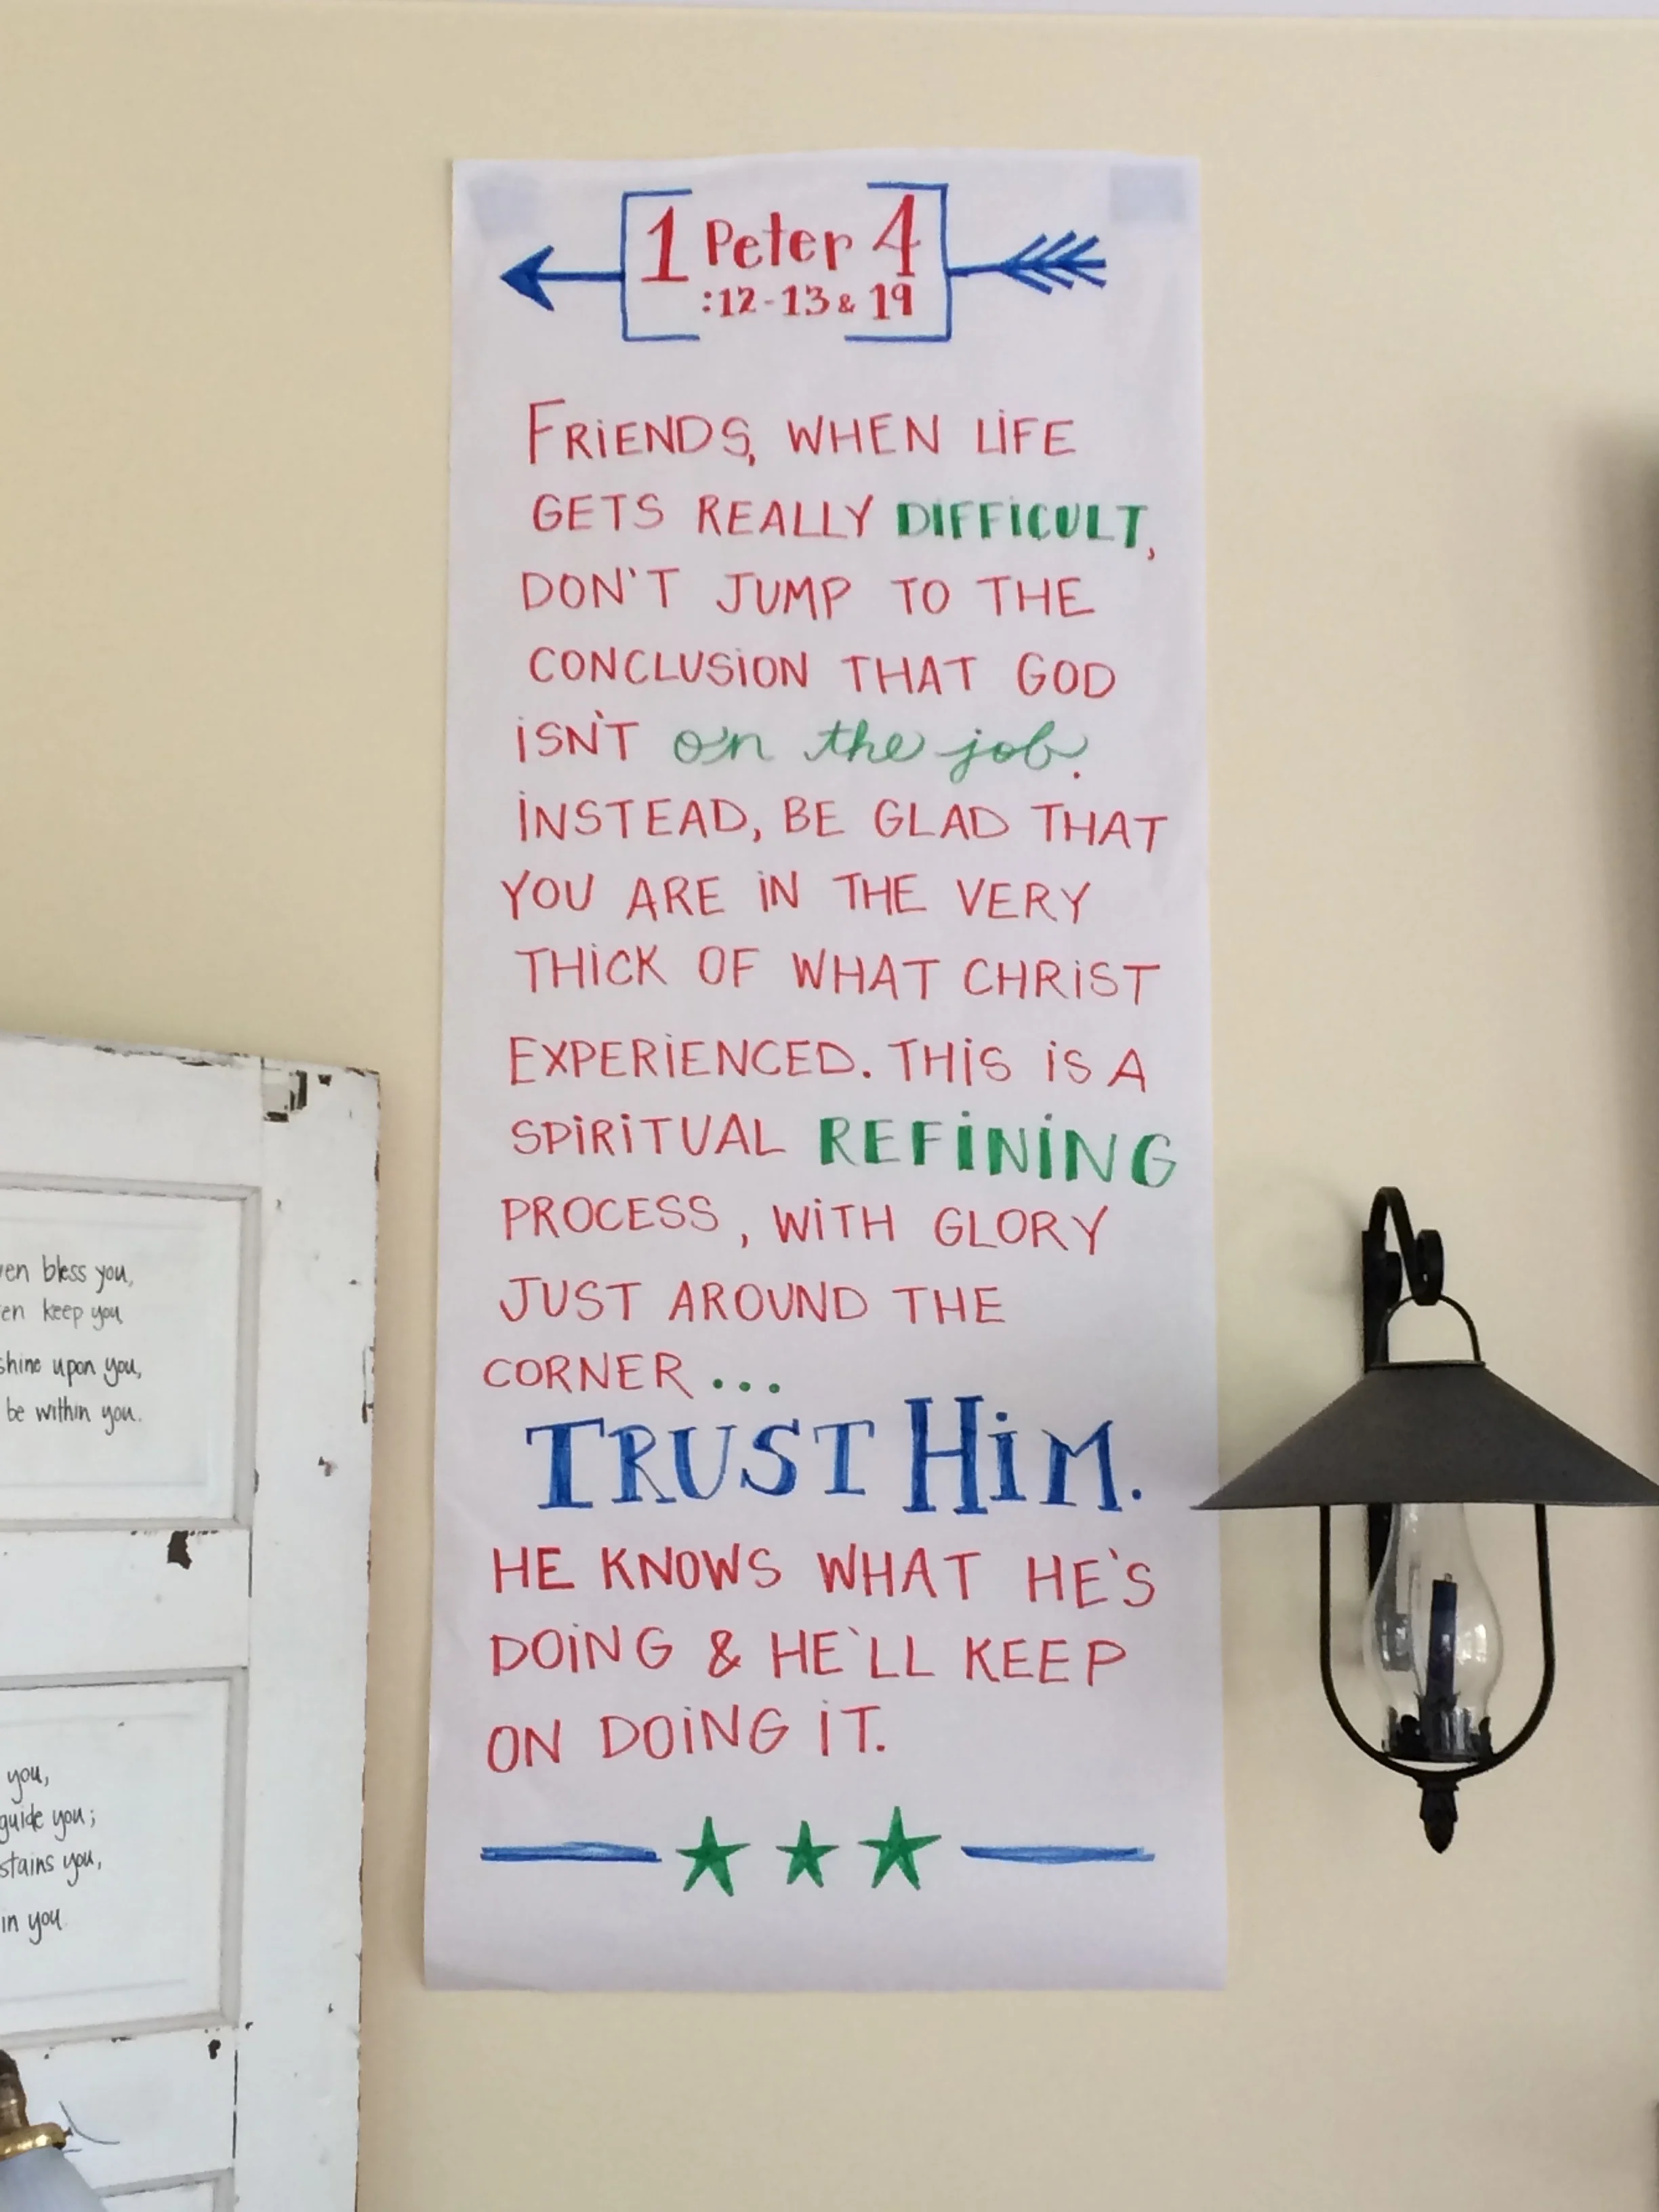 1 Peter 4
:12-13 & 19
FRIENDS, WHEN LIFE
GETS REALLY DIFFICULT,
DON'T JUMP TO THE
CONCLUSION THAT GOD
ISN'T on the job.
INSTEAD, BE GLAD THAT
YOU ARE IN THE VERY
THICK OF WHAT CHRIST
EXPERIENCED. THIS IS A
SPIRITUAL REFINING
PROCESS, WITH GLORY
JUST AROUND THE
CORNER...
TRUST HIM.
HE KNOWS WHAT HE'S
DOING & HE'LL KEEP
ON DOING IT.
bless you,
keep you,
shine upon you,
be within you.
you,
guide you;
you,
in you